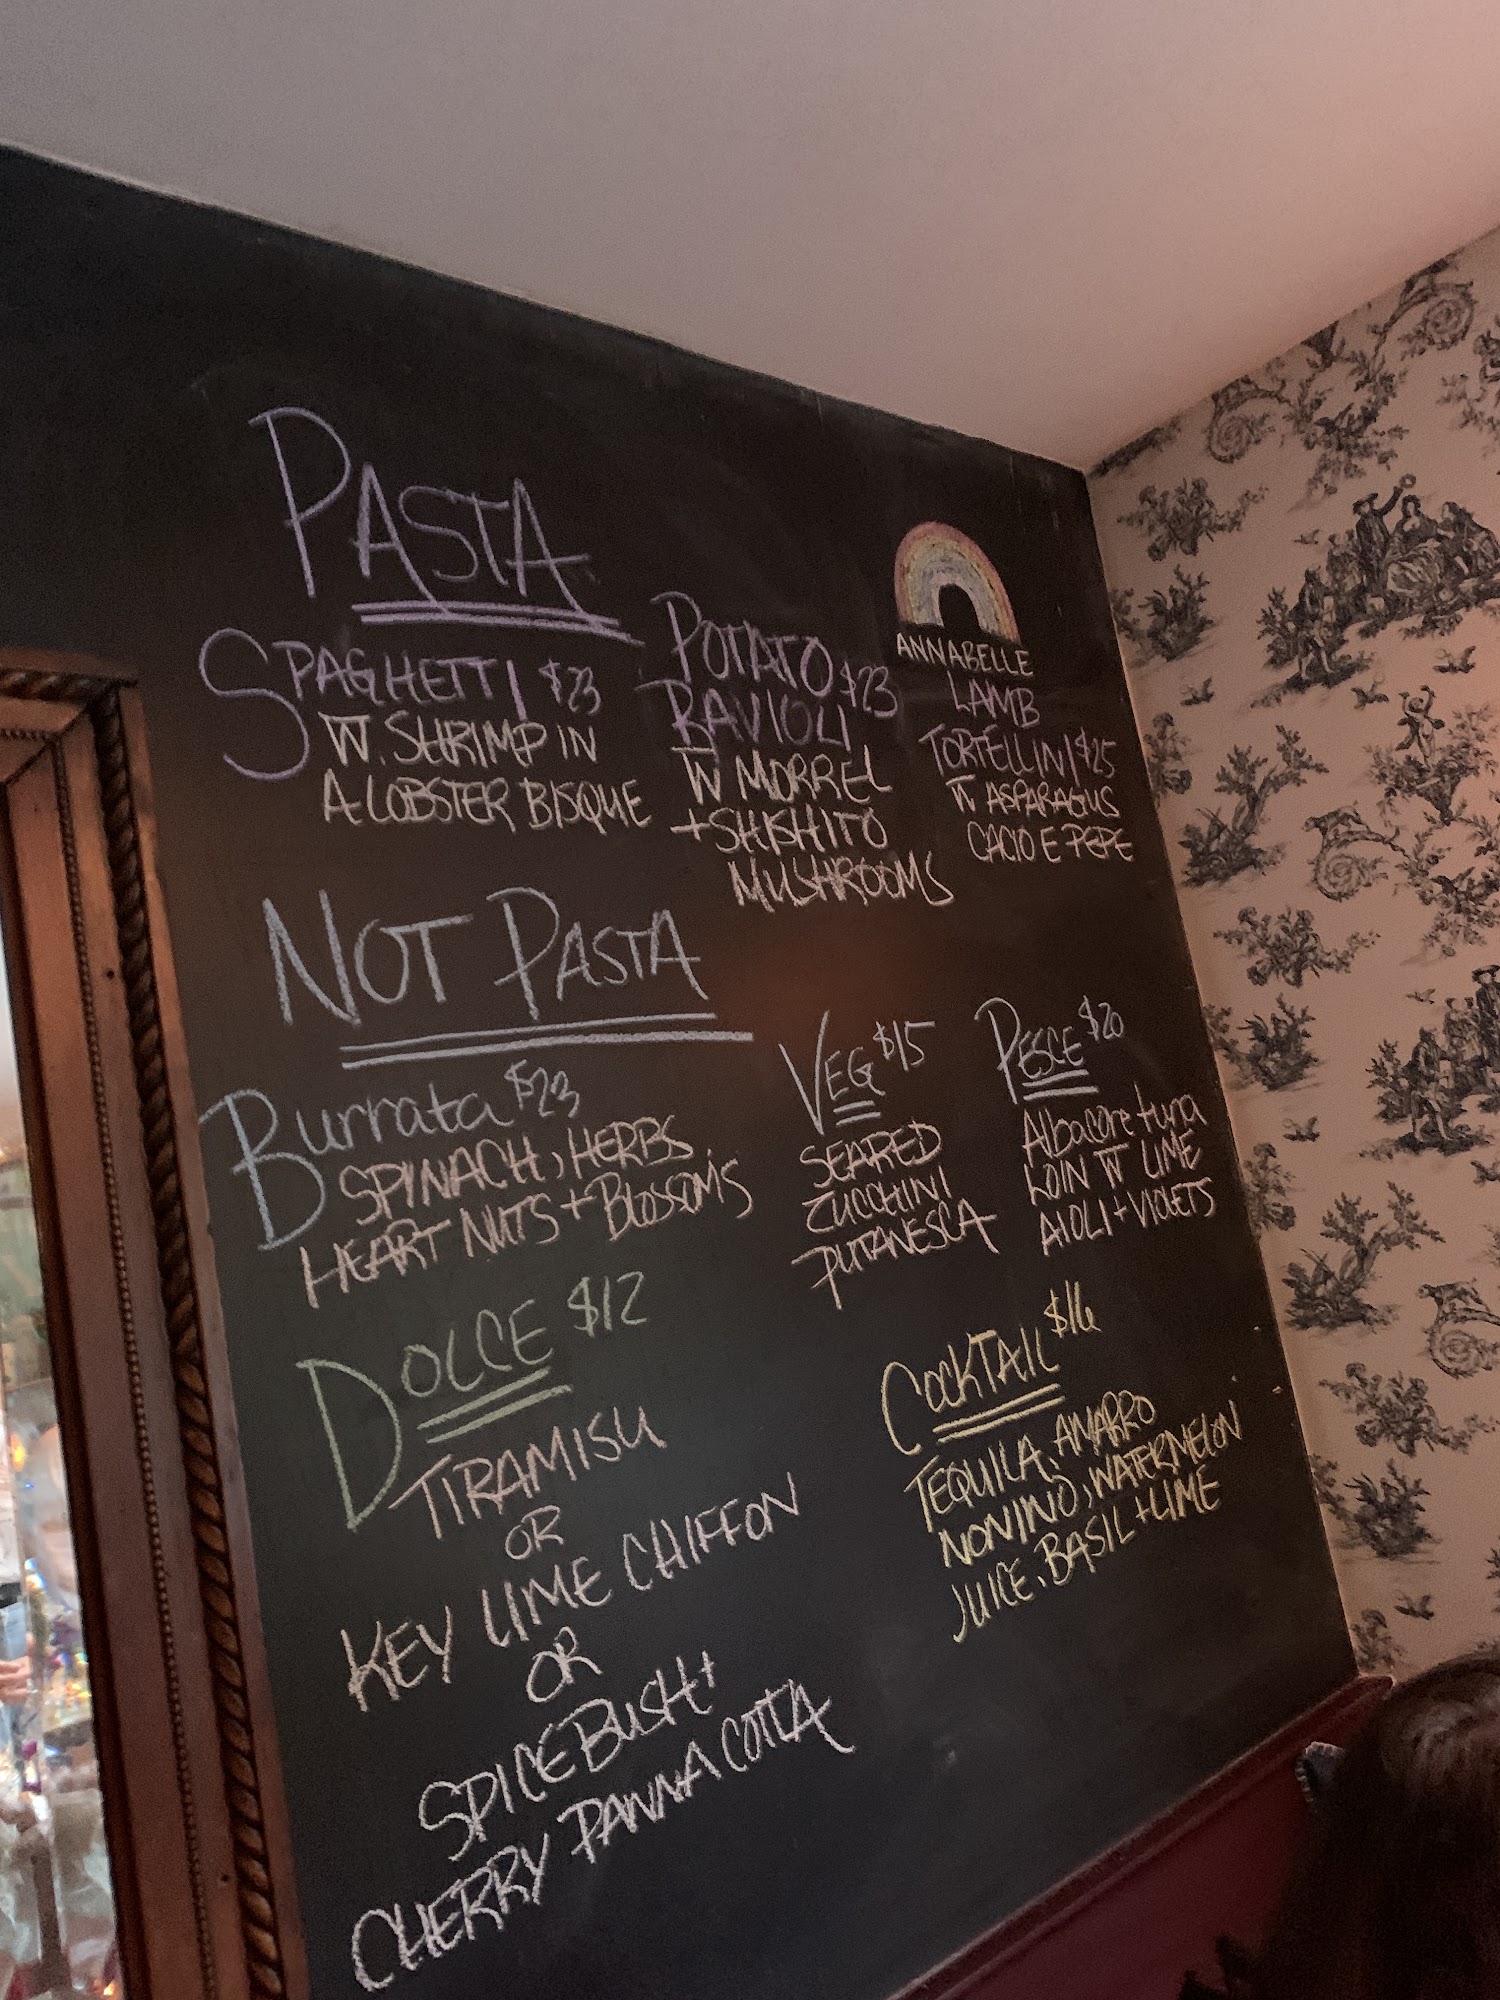 PASTA
SPAGHETTI $23
W. SHRIMP IN
A LOBSTER BISQUE
POTATO
RAVIOLI $23
W MORREL
+ SHISHITO
MUSHROOMS
ANNABELLE
LAMB
TORTELLINI $25
W ASPARAGUS
CACIO E PEPE
NOT PASTA
Burrata $23
SPINACH, HERBS
HEART NUTS + BLOSSOMS
VEG $15
SEARED
ZUCCHINI
PUTANESCA
PESCE $20
Albacore tuna
LOIN W LIME
AIOLI + VIOLETS
DOLCE $12
TIRAMISU
OR
KEY LIME CHIFFON
OR
SPICEBUSH +
CHERRY PANNA COTTA
COCKTAIL $16
TEQUILA, AMARRO
NONINO, WATERMELON
JUICE, BASIL + LIME